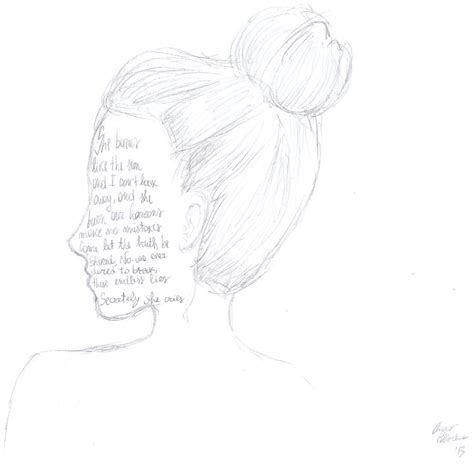 She burns
like the sun
and I can't look
away, and she
burn our horizons
make no mistakes
Gonna let the truth be
No-one ever
dared to break
these endless lies
Secretly she cries
'15